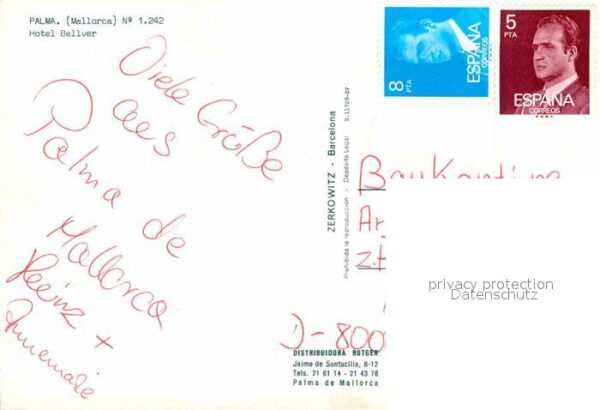 PALMA. (Mallorca) Nº 1.242
Hotel Bellver
Viele Grüße
aus
Palma de
Mallorca
Heinz +
Annemarie
ZERKOWITZ - Barcelona
Prohibida la reproducción - Depósito Legal B.11708-XV
8 PTA
ESPAÑA
CORREOS
5 PTA
ESPAÑA
CORREOS
Baukantine
Ar
z.H
D-800
privacy protection
Datenschutz
DISTRIBUIDORA ROTGER
Jaime de Santacilia, 8-12
Tels. 21 61 14 - 21 43 76
Palma de Mallorca